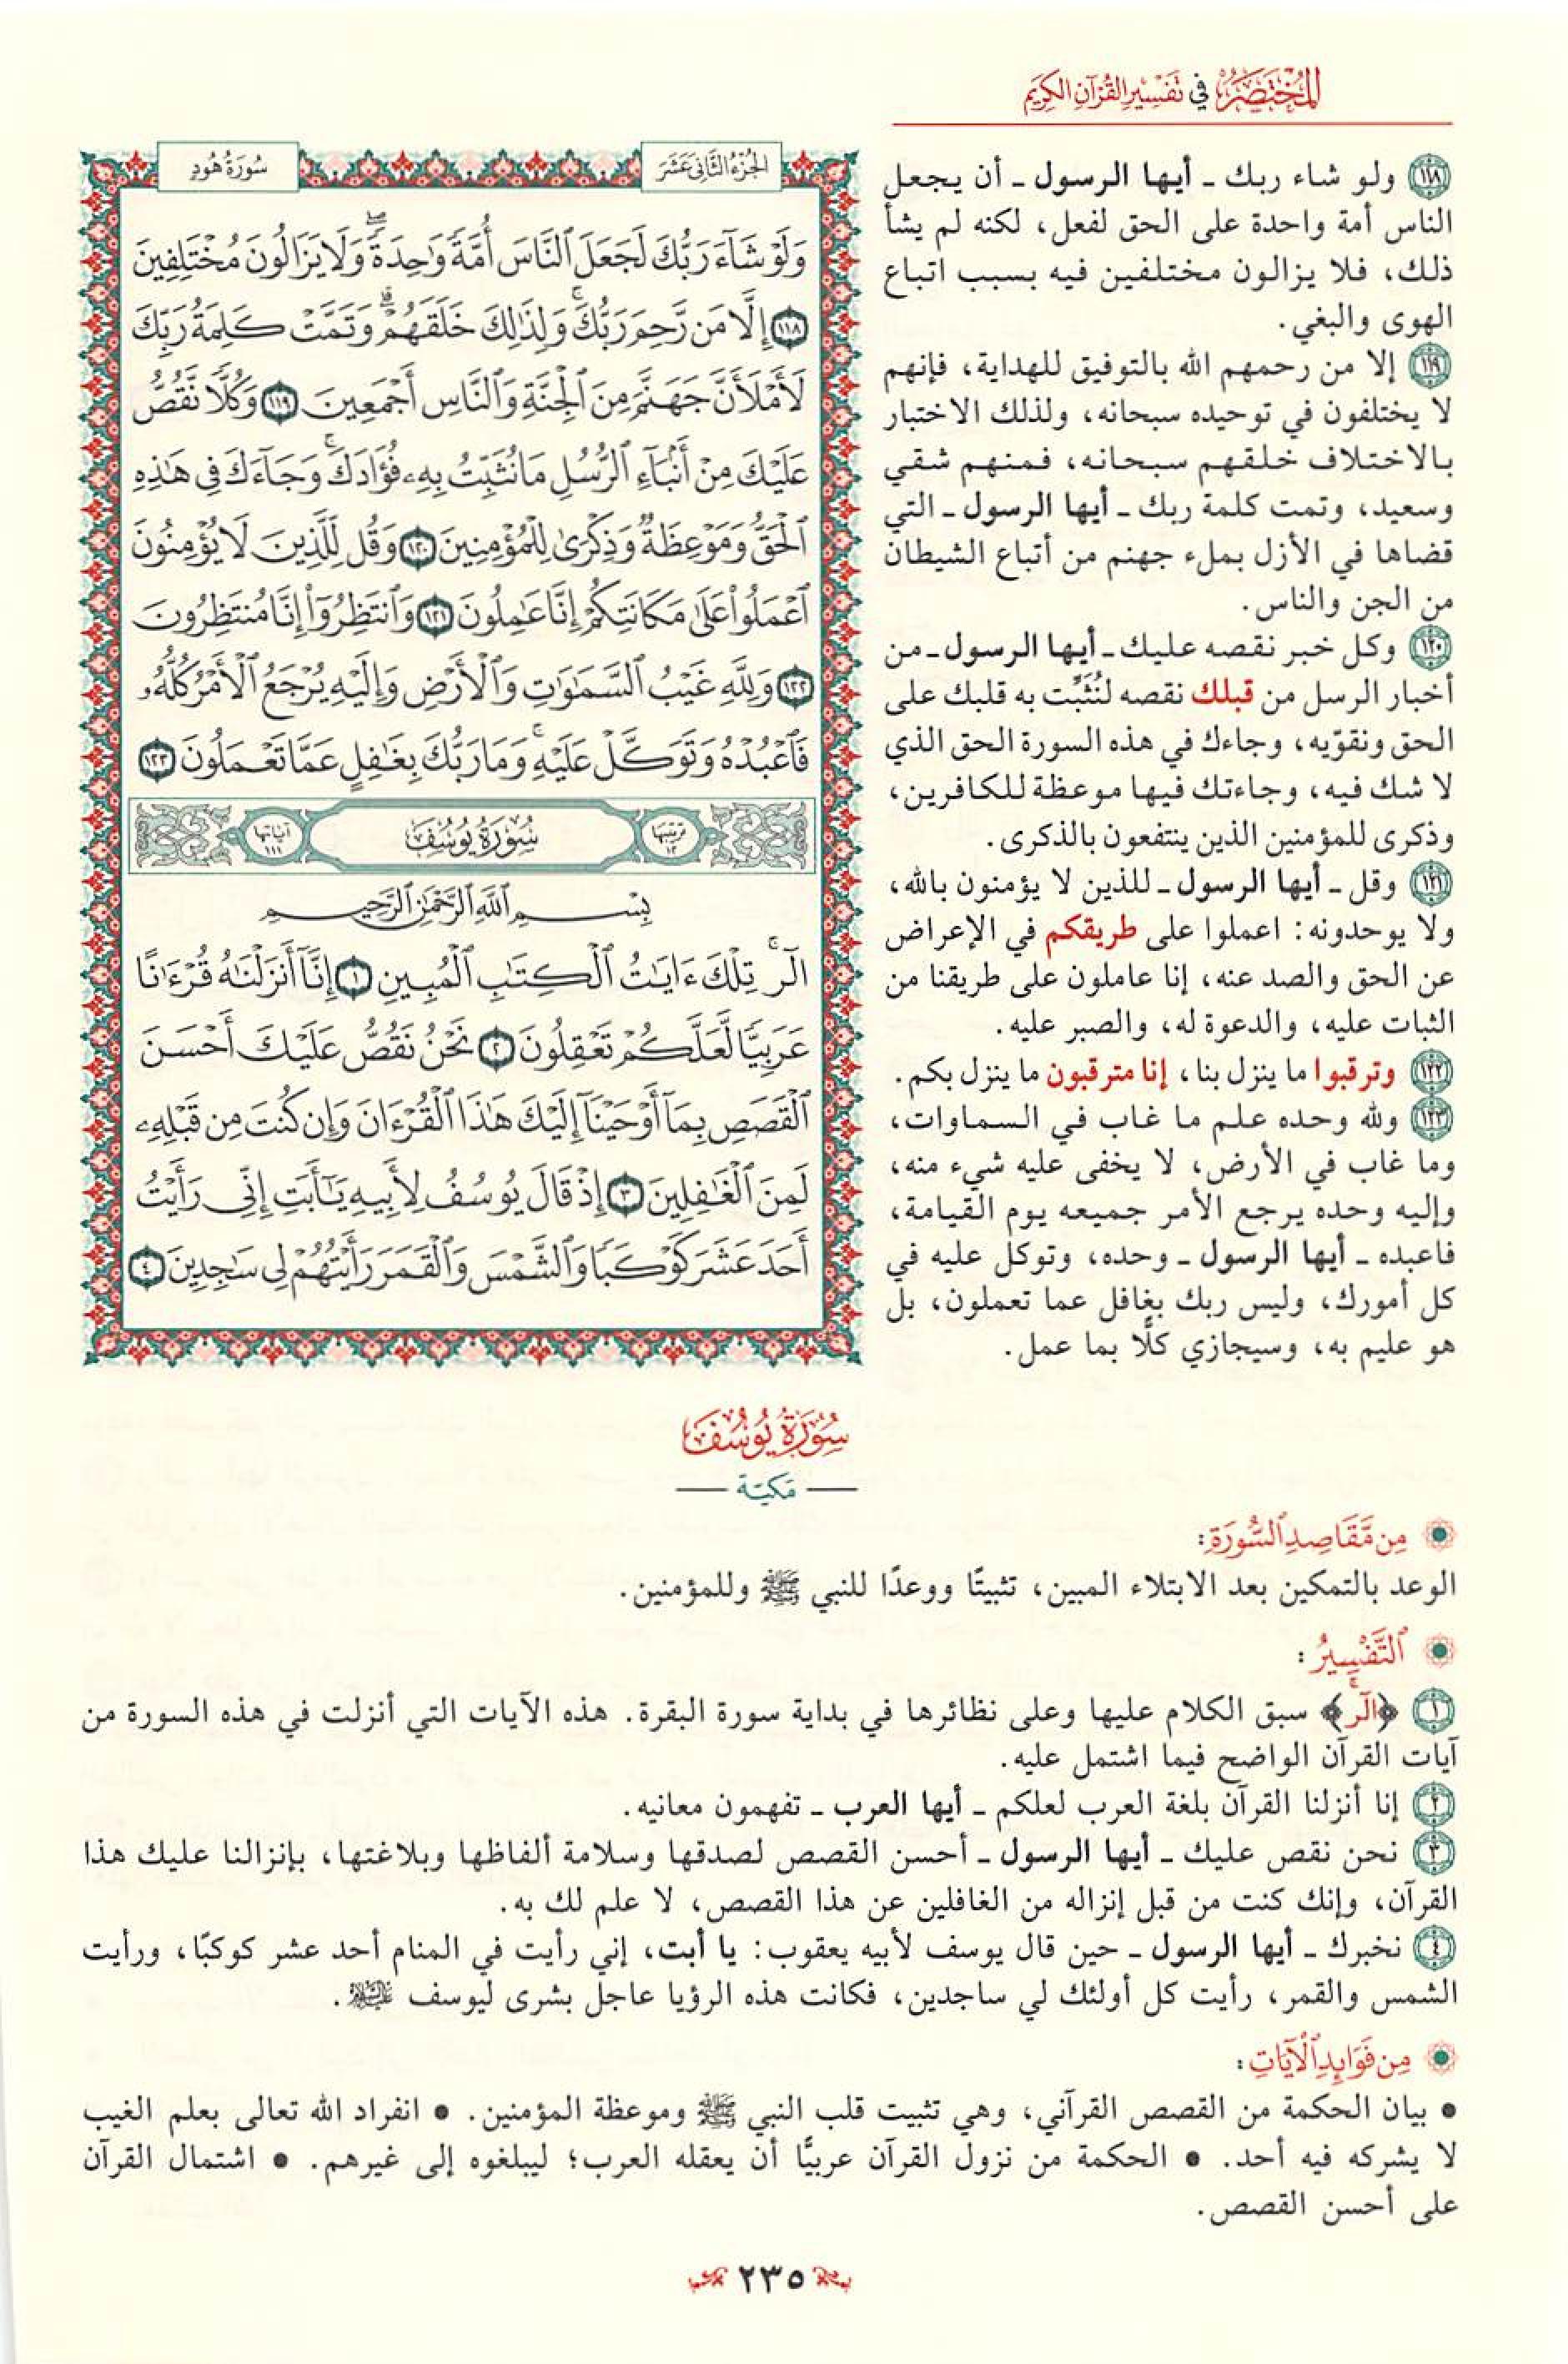 المختصر في تفسير القرآن الكريم
الجزء الثاني عشر
سورة هود
وَلَوْ شَآءَ رَبُّكَ لَجَعَلَ ٱلنَّاسَ أُمَّةً وَٰحِدَةًۖ وَلَا يَزَالُونَ مُخْتَلِفِينَ
١١٨ إِلَّا مَن رَّحِمَ رَبُّكَۚ وَلِذَٰلِكَ خَلَقَهُمْۗ وَتَمَّتْ كَلِمَةُ رَبِّكَ
لَأَمْلَأَنَّ جَهَنَّمَ مِنَ ٱلْجِنَّةِ وَٱلنَّاسِ أَجْمَعِينَ ١١٩ وَكُلًّا نَّقُصُّ
عَلَيْكَ مِنْ أَنۢبَآءِ ٱلرُّسُلِ مَا نُثَبِّتُ بِهِۦ فُؤَادَكَۚ وَجَآءَكَ فِى هَٰذِهِ
ٱلْحَقُّ وَمَوْعِظَةٌ وَذِكْرَىٰ لِلْمُؤْمِنِينَ ١٢٠ وَقُل لِّلَّذِينَ لَا يُؤْمِنُونَ
ٱعْمَلُوا۟ عَلَىٰ مَكَانَتِكُمْ إِنَّا عَٰمِلُونَ ١٢١ وَٱنتَظِرُوٓا۟ إِنَّا مُنتَظِرُونَ
١٢٢ وَلِلَّهِ غَيْبُ ٱلسَّمَٰوَٰتِ وَٱلْأَرْضِ وَإِلَيْهِ يُرْجَعُ ٱلْأَمْرُ كُلُّهُۥ
فَٱعْبُدْهُ وَتَوَكَّلْ عَلَيْهِۚ وَمَا رَبُّكَ بِغَٰفِلٍ عَمَّا تَعْمَلُونَ ١٢٣
ترتيبها ١٢ سُورَةُ يُوسُفَ آياتها ١١١
بِسْمِ ٱللَّهِ ٱلرَّحْمَٰنِ ٱلرَّحِيمِ
الٓرۚ تِلْكَ ءَايَٰتُ ٱلْكِتَٰبِ ٱلْمُبِينِ ١ إِنَّآ أَنزَلْنَٰهُ قُرْءَٰنًا
عَرَبِيًّا لَّعَلَّكُمْ تَعْقِلُونَ ٢ نَحْنُ نَقُصُّ عَلَيْكَ أَحْسَنَ
ٱلْقَصَصِ بِمَآ أَوْحَيْنَآ إِلَيْكَ هَٰذَا ٱلْقُرْءَانَ وَإِن كُنتَ مِن قَبْلِهِۦ
لَمِنَ ٱلْغَٰفِلِينَ ٣ إِذْ قَالَ يُوسُفُ لِأَبِيهِ يَٰٓأَبَتِ إِنِّى رَأَيْتُ
أَحَدَ عَشَرَ كَوْكَبًا وَٱلشَّمْسَ وَٱلْقَمَرَ رَأَيْتُهُمْ لِى سَٰجِدِينَ ٤
١١٨ ولو شاء ربك ـ أيها الرسول ـ أن يجعل
الناس أمة واحدة على الحق لفعل، لكنه لم يشأ
ذلك، فلا يزالون مختلفين فيه بسبب اتباع
الهوى والبغي.
١١٩ إلا من رحمهم الله بالتوفيق للهداية، فإنهم
لا يختلفون في توحيده سبحانه، ولذلك الاختبار
بالاختلاف خلقهم سبحانه، فمنهم شقي
وسعيد، وتمت كلمة ربك ـ أيها الرسول ـ التي
قضاها في الأزل بملء جهنم من أتباع الشيطان
من الجن والناس.
١٢٠ وكل خبر نقصه عليك ـ أيها الرسول ـ من
أخبار الرسل من قبلك نقصه لنُثَبِّت به قلبك على
الحق ونقوّيه، وجاءك في هذه السورة الحق الذي
لا شك فيه، وجاءتك فيها موعظة للكافرين،
وذكرى للمؤمنين الذين ينتفعون بالذكرى.
١٢١ وقل ـ أيها الرسول ـ للذين لا يؤمنون بالله،
ولا يوحدونه: اعملوا على طريقكم في الإعراض
عن الحق والصد عنه، إنا عاملون على طريقنا من
الثبات عليه، والدعوة له، والصبر عليه.
١٢٢ وترقبوا ما ينزل بنا، إنا مترقبون ما ينزل بكم.
١٢٣ ولله وحده علم ما غاب في السماوات،
وما غاب في الأرض، لا يخفى عليه شيء منه،
وإليه وحده يرجع الأمر جميعه يوم القيامة،
فاعبده ـ أيها الرسول ـ وحده، وتوكل عليه في
كل أمورك، وليس ربك بغافل عما تعملون، بل
هو عليم به، وسيجازي كلًّا بما عمل.
سُورَةُ يُوسُفَ
مَكيّة
مِن مَّقَاصِدِ ٱلسُّورَةِ:
الوعد بالتمكين بعد الابتلاء المبين، تثبيتًا ووعدًا للنبي ﷺ وللمؤمنين.
ٱلتَّفْسِيرُ:
١ ﴿الٓرۚ﴾ سبق الكلام عليها وعلى نظائرها في بداية سورة البقرة. هذه الآيات التي أنزلت في هذه السورة من
آيات القرآن الواضح فيما اشتمل عليه.
٢ إنا أنزلنا القرآن بلغة العرب لعلكم ـ أيها العرب ـ تفهمون معانيه.
٣ نحن نقص عليك ـ أيها الرسول ـ أحسن القصص لصدقها وسلامة ألفاظها وبلاغتها، بإنزالنا عليك هذا
القرآن، وإنك كنت من قبل إنزاله من الغافلين عن هذا القصص، لا علم لك به.
٤ نخبرك ـ أيها الرسول ـ حين قال يوسف لأبيه يعقوب: يا أبت، إني رأيت في المنام أحد عشر كوكبًا، ورأيت
الشمس والقمر، رأيت كل أولئك لي ساجدين، فكانت هذه الرؤيا عاجل بشرى ليوسف عليه السلام.
مِن فَوَائِدِ ٱلْآيَاتِ:
• بيان الحكمة من القصص القرآني، وهي تثبيت قلب النبي ﷺ وموعظة المؤمنين. • انفراد الله تعالى بعلم الغيب
لا يشركه فيه أحد. • الحكمة من نزول القرآن عربيًّا أن يعقله العرب؛ ليبلغوه إلى غيرهم. • اشتمال القرآن
على أحسن القصص.
٢٣٥